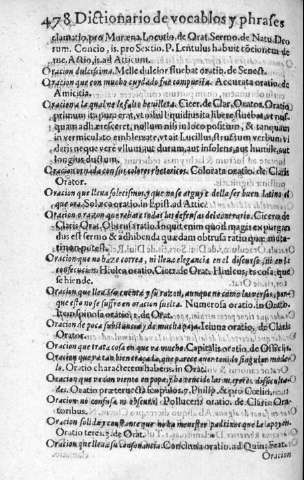 478 Dictionario de vocablos y phrases
clamatio, pro Murena. Locutio, de Orat. Sermo, de Natu. Deo
rum. Concio, is, pro Sextio. P. Lentulus habuit cōcionem de
me. Actio, is, ad Atticum.
Oracion dulcissima. Melle dulcior fluebat oratio. de Senect.
Oracion que con mucho cuydado fue compuesta. Accurata oratio. de
Amicitia.
Oracion a la qual no le falte hevilleta. Cicer. de Clar. Orator. Oratio
primùm ita pura erat, vt nihil liquidius: ita libere fluebat, vt nus
quam adhæresceret, nullum nisi in loco positum, & tanquam
in vermiculato emblemate, vt ait Lucilius, structum verbum vi
deris: neque verè vllum aut durum, aut insolens, aut humile, aut
longius ductum.
Oracion ornada con sus colores rhetoricos. Colorata oratio. de Claris
Orator.
Oracion que llena solecismos, y que no se arguye della ser buen latino el
que ora. Solœca oratio in Epist. ad Attic.
Oracion o razon que rebate todas las defensas del contrario. Cicero de
Claris Orat.
dus est sermo & adhibenda quædam obstusa ratio quæ
Oracion que no haze correa, ni lleua elegancia en el discurso, ni en la
consecucion. Hiulca oratio. Cicer. de Orat. Hiulcus, es cosa que
se hiende.
Oracion que lleua su cuenta y su razon, aunque no como los versos, por
que esto no se sufre en oracion suelta. Numerosa oratio, in Orat.
Item spinosa oratio, 1. de Orat.
Oracion de poca substancia y de mucha paja. Ieiuna oratio. de Claris
Orator.
Oracion que trata cosa en que va mucho. Capitalis oratio. de Officiis.
Oracion que ya tan bien traçada, que parece aver tenido singular mode
lo. Oratio characterem habens. in Orat.
Oracion que va con viento en popa, y ha vencido las mayores difficulta-
des. Oratio præteructa scopulos, 7. Philip. & pro Cœlio.
Oracion no confusa ni obscura. Pollucens oratio. de Claris Ora-
toribus.
Oracion solida y constante que no ha menester padrinos que la apoyen.
Oratio teres, 3. de Orat.
Oracion que lleua su consonancia. Concinna oratio. ad Quin. Frat.
Oracion